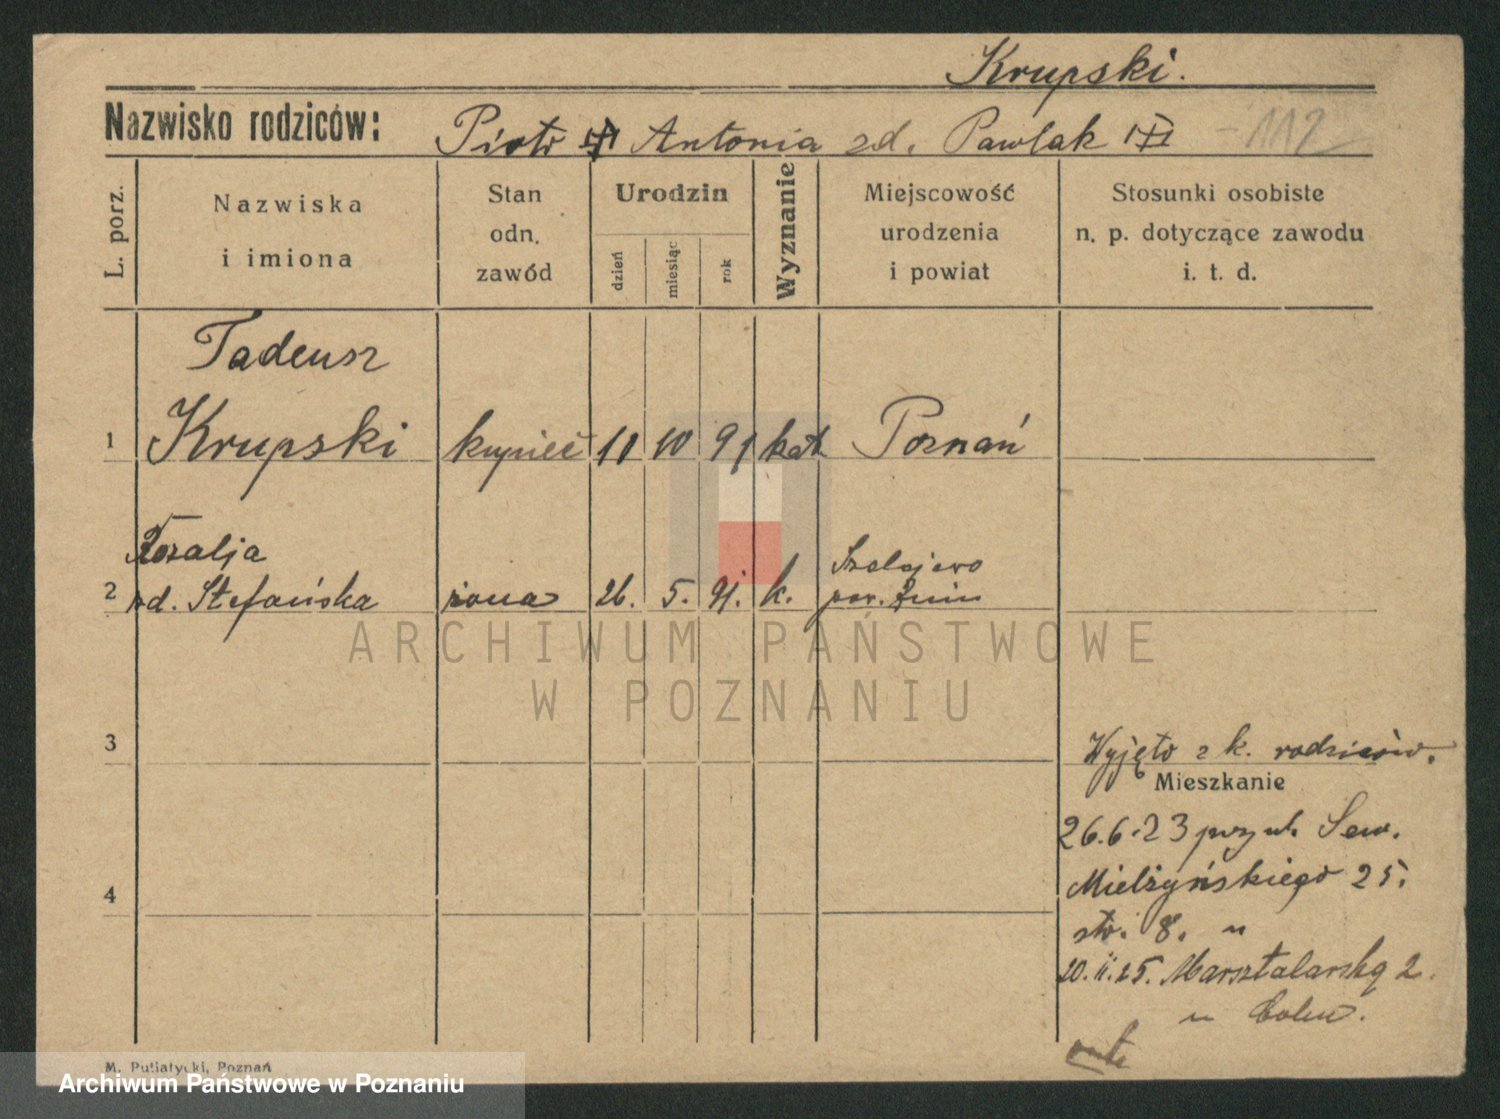 Krupski.
Nazwisko rodziców: Piotr Antonia zd. Pawlak - 112
L. porz.
Nazwiska i imiona
Stan odn. zawód
Urodzin
dzień miesiąc rok
Wyznanie
Miejscowość urodzenia i powiat
Stosunki osobiste n. p. dotyczące zawodu i. t. d.
Tadeusz
1 Krupski kupiec 11 10 91 kat Poznań
Rozalja
2 zd. Stefańska żona 26. 5. 91. k.
pow. Żnin
ARCHIWUM PAŃSTWOWE
W POZNANIU
3
Wyjęto z k. rodziców.
Mieszkanie
26.6.23 przy ul. Sew.
Mielżyńskiego 25.
4
str. 8. u
20.11.25. Marsztalarską 2.
u
M. Putiatycki, Poznań
Archiwum Państwowe w Poznaniu